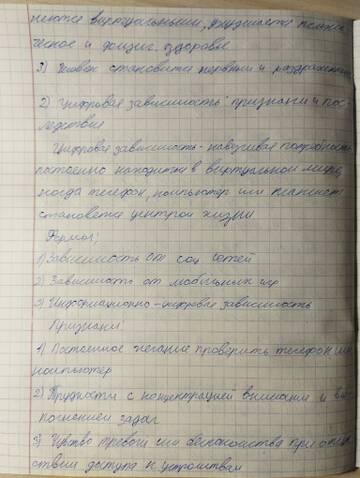 няются виртуальными, ухудшается психи-
ческое и физич. здоровье
3) Человек становится нервным и раздражитель
2) "Цифровая зависимость" признаки и пос-
ледствие
Цифровая зависимость - навязчивая потребность
постоянно находится в виртуальном мире,
когда телефон, компьютер или планшет
становется центром жизни
Формы:
1) Зависимость от соц сетей
2) Зависимость от мобильных игр
3) Информационно-цифровая зависимость
Признаки:
1) Постоянное желание проверить телефон или
компьютер
2) Трудности с концентрацией внимания и вы-
полнением задач
3) Чувство тревоги или беспокойства при отсут
ствии доступа к устройствам